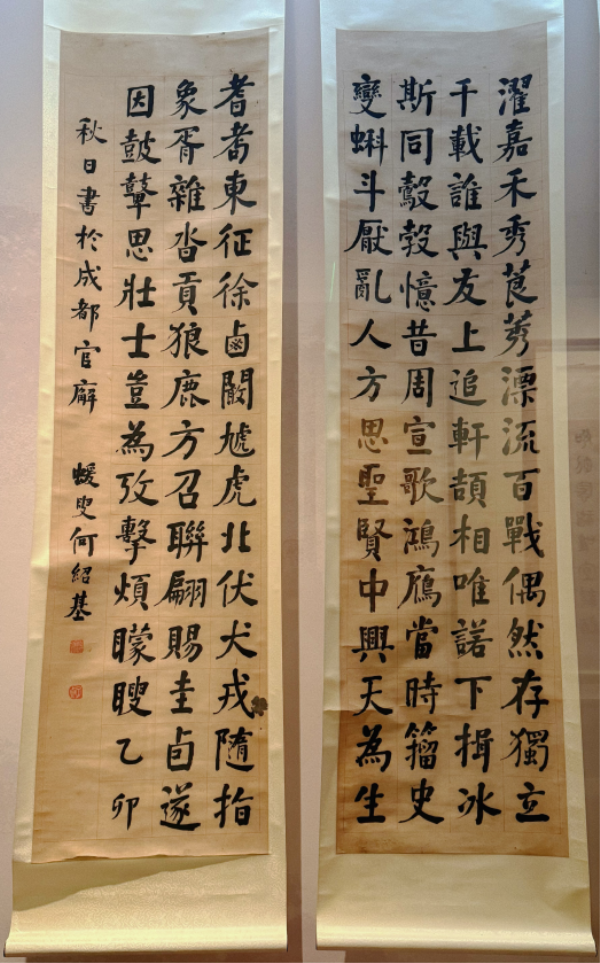 濯嘉禾秀莨莠漂流百戰偶然存獨立
千載誰與友上追軒頡相唯諾下揖冰
斯同鷇㝅憶昔周宣歌鴻鴈當時籀史
變蝌斗厭亂人方思聖賢中興天為生
耆耇東征徐鹵闞虓虎北伏犬戎隨指
象胥雜沓貢狼鹿方召聯翩賜圭卣遂
因鼓鼙思壯士豈為攷擊煩矇瞍乙卯
秋日書於成都官廨 蝯叟何紹基